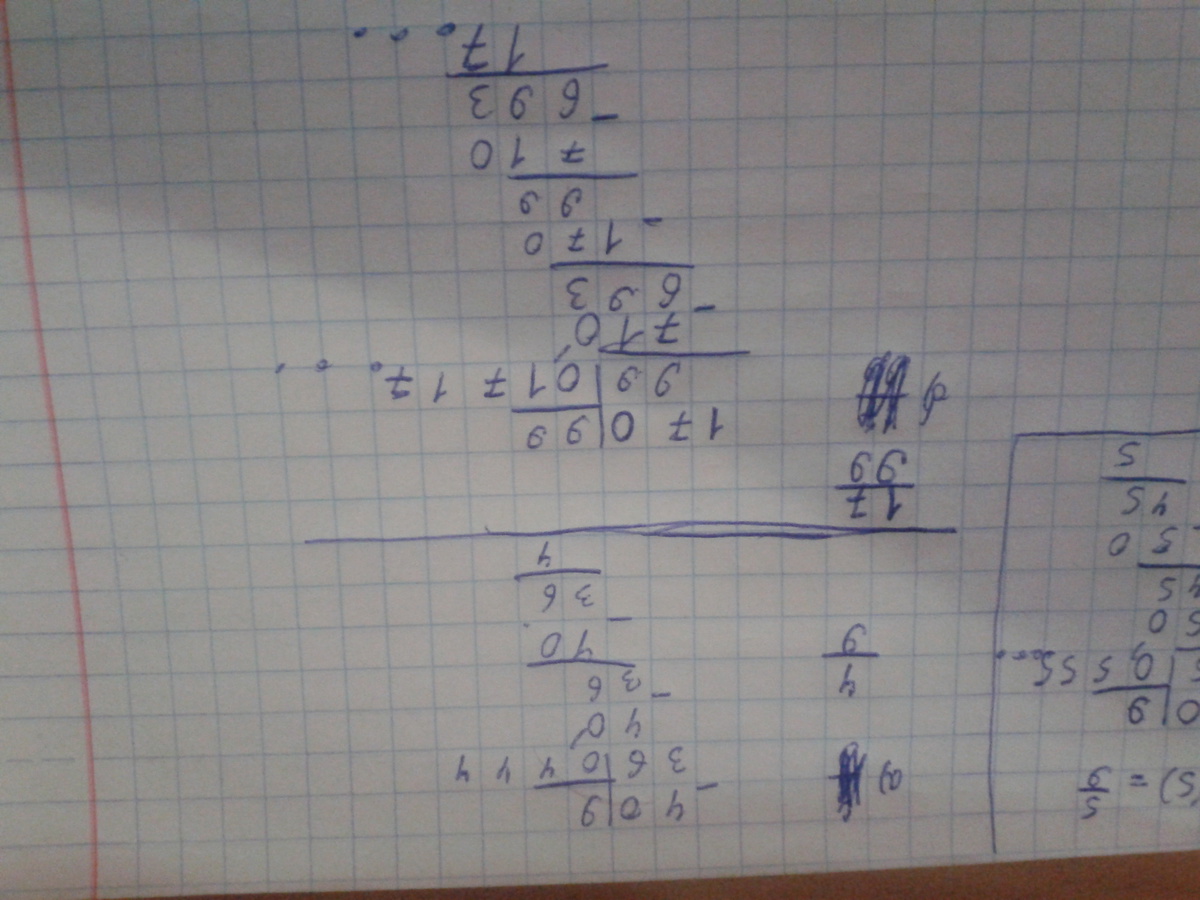 5) = 5/9
0 | 9
5 | 0,5 55...
50
45
50
45
5
a) 4/9
- 40 | 9
36 | 0,4 4 4
40
- 36
40
- 36
4
17/99
б)
170 | 99
99 | 0,17 17...
710
- 693
170
- 99
710
- 693
17...